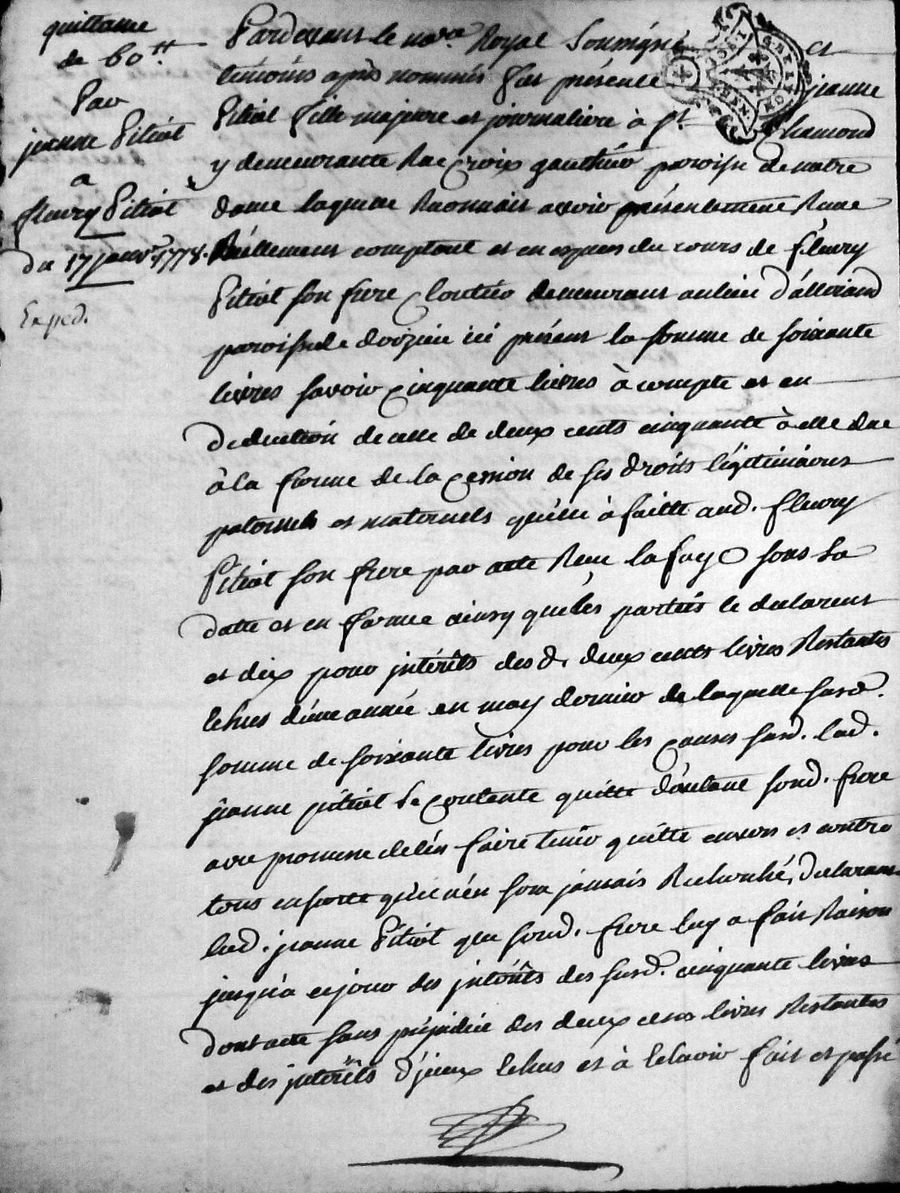 quittance
de 60.tt
Par
jeanne Pitiot
a
fleury Pitiot
du 17 janv.r 1778.
Exped.
Pardevant le no.re Royal Soussigné et
temoins après nommés fut présente jeanne
Pitiot fille majeure et journaliere à St. Chamond
y demeurante Rue Croix gauthier paroisse de notre
dame laquelle Reconnait avoir présentement Reçu
Réellement comptant et en especes du cours de fleury
Pitiot son frere cloutier demeurant au lieu d'
paroisse de doizieu ici présent la somme de soixante
livres savoir cinquante livres à compte et en
deduction de celle de deux cents cinquante à elle due
à la forme de la cession de ses droits légitimaires
paternels et maternels qu'elle à faitte aud. fleury
Pitiot son frere par acte Reçu la fay sous sa
datte et en forme ainsy que les parties le declarent
et dix pour intérêts desd. deux cents livres Restantes
échus d'une année en may dernier de laquelle susd.
somme de soixante livres pour les causes susd. lad.
jeanne pitiot se contente quitte d'autant sond. frere
avec promesse de l'en faire tenir quitte envers et contre
tous en sorte qu'il n'en sera jamais Recherché, declarant
lad. jeanne Pitiot que sond. frere luy a fait Raison
jusqu'à ce jour des intérêts des susd. cinquante livres
dont acte sans préjudice des deux cens livres Restantes
et des intérêts d'jceux échus et à échoir fait et passé